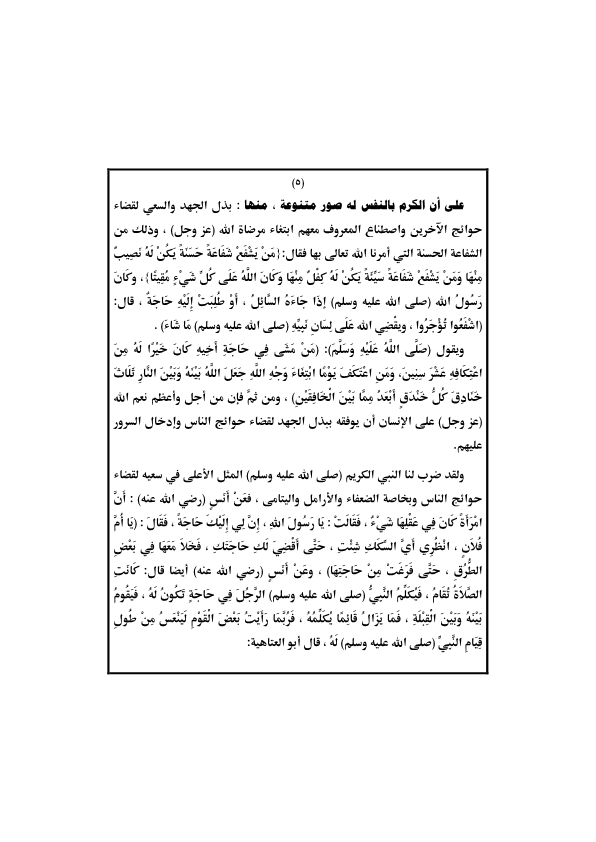 (٥)
على أن الكرم بالنفس له صور متنوعة ، منها : بذل الجهد والسعي لقضاء
حوائج الآخرين واصطناع المعروف معهم ابتغاء مرضاة الله (عز وجل) ، وذلك من
الشفاعة الحسنة التي أمرنا الله تعالى بها فقال:{مَنْ يَشْفَعْ شَفَاعَةً حَسَنَةً يَكُنْ لَهُ نَصِيبٌ
مِنْهَا وَمَنْ يَشْفَعْ شَفَاعَةً سَيِّئَةً يَكُنْ لَهُ كِفْلٌ مِنْهَا وَكَانَ اللَّهُ عَلَى كُلِّ شَيْءٍ مُقِيتًا}، وكَانَ
رَسُولُ الله (صلى الله عليه وسلم) إذَا جَاءَهُ السَّائِلُ ، أَوْ طُلِبَتْ إِلَيْهِ حَاجَةٌ ، قال:
(اشْفَعُوا تُؤْجَرُوا ، ويقْضِي الله عَلَى لِسَانِ نَبِيِّهِ (صلى الله عليه وسلم) مَا شَاءَ) .
ويقول (صَلَّى اللَّهُ عَلَيْهِ وَسَلَّمَ): (مَنْ مَشَى فِي حَاجَةِ أَخِيهِ كَانَ خَيْرًا لَهُ مِنَ
اعْتِكَافِهِ عَشْرَ سِنِينَ، وَمَنِ اعْتَكَفَ يَوْمًا ابْتِغَاءَ وَجْهِ اللَّهِ جَعَلَ اللَّهُ بَيْنَهُ وَبَيْنَ النَّارِ ثَلَاثَ
خَنَادِقَ كُلُّ خَنْدَقٍ أَبْعَدُ مِمَّا بَيْنَ الْخَافِقَيْنِ) ، ومن ثمَّ فإن من أجل وأعظم نعم الله
(عز وجل) على الإنسان أن يوفقه ببذل الجهد لقضاء حوائج الناس وإدخال السرور
عليهم.
ولقد ضرب لنا النبي الكريم (صلى الله عليه وسلم) المثل الأعلى في سعيه لقضاء
حوائج الناس وبخاصة الضعفاء والأرامل واليتامى ، فعَنْ أَنَسٍ (رضي الله عنه) : أَنَّ
امْرَأَةً كَانَ فِي عَقْلِهَا شَيْءٌ ، فَقَالَتْ : يَا رَسُولَ اللهِ ، إِنَّ لِي إِلَيْكَ حَاجَةً ، فَقَالَ : (يَا أُمَّ
فُلَانٍ ، انْظُرِي أَيَّ السِّكَكِ شِئْتِ ، حَتَّى أَقْضِيَ لَكِ حَاجَتَكِ ، فَخَلَا مَعَهَا فِي بَعْضِ
الطُّرُقِ ، حَتَّى فَرَغَتْ مِنْ حَاجَتِهَا) ، وعَنْ أَنَسٍ (رضي الله عنه) أيضا قال: كَانَتِ
الصَّلَاةُ تُقَامُ ، فَيُكَلِّمُ النبيُّ (صلى الله عليه وسلم) الرَّجُلَ فِي حَاجَةٍ تَكُونُ لَهُ ، فَيَقُومُ
بَيْنَهُ وَبَيْنَ الْقِبْلَةِ ، فَمَا يَزَالُ قَائِمًا يُكَلِّمُهُ ، فَرُبَّمَا رَأَيْتُ بَعْضَ الْقَوْمِ لَيَنْعَسُ مِنْ طُولِ
قِيَامِ النَّبِيِّ (صلى الله عليه وسلم) لَهُ ، قال أبو العتاهية: